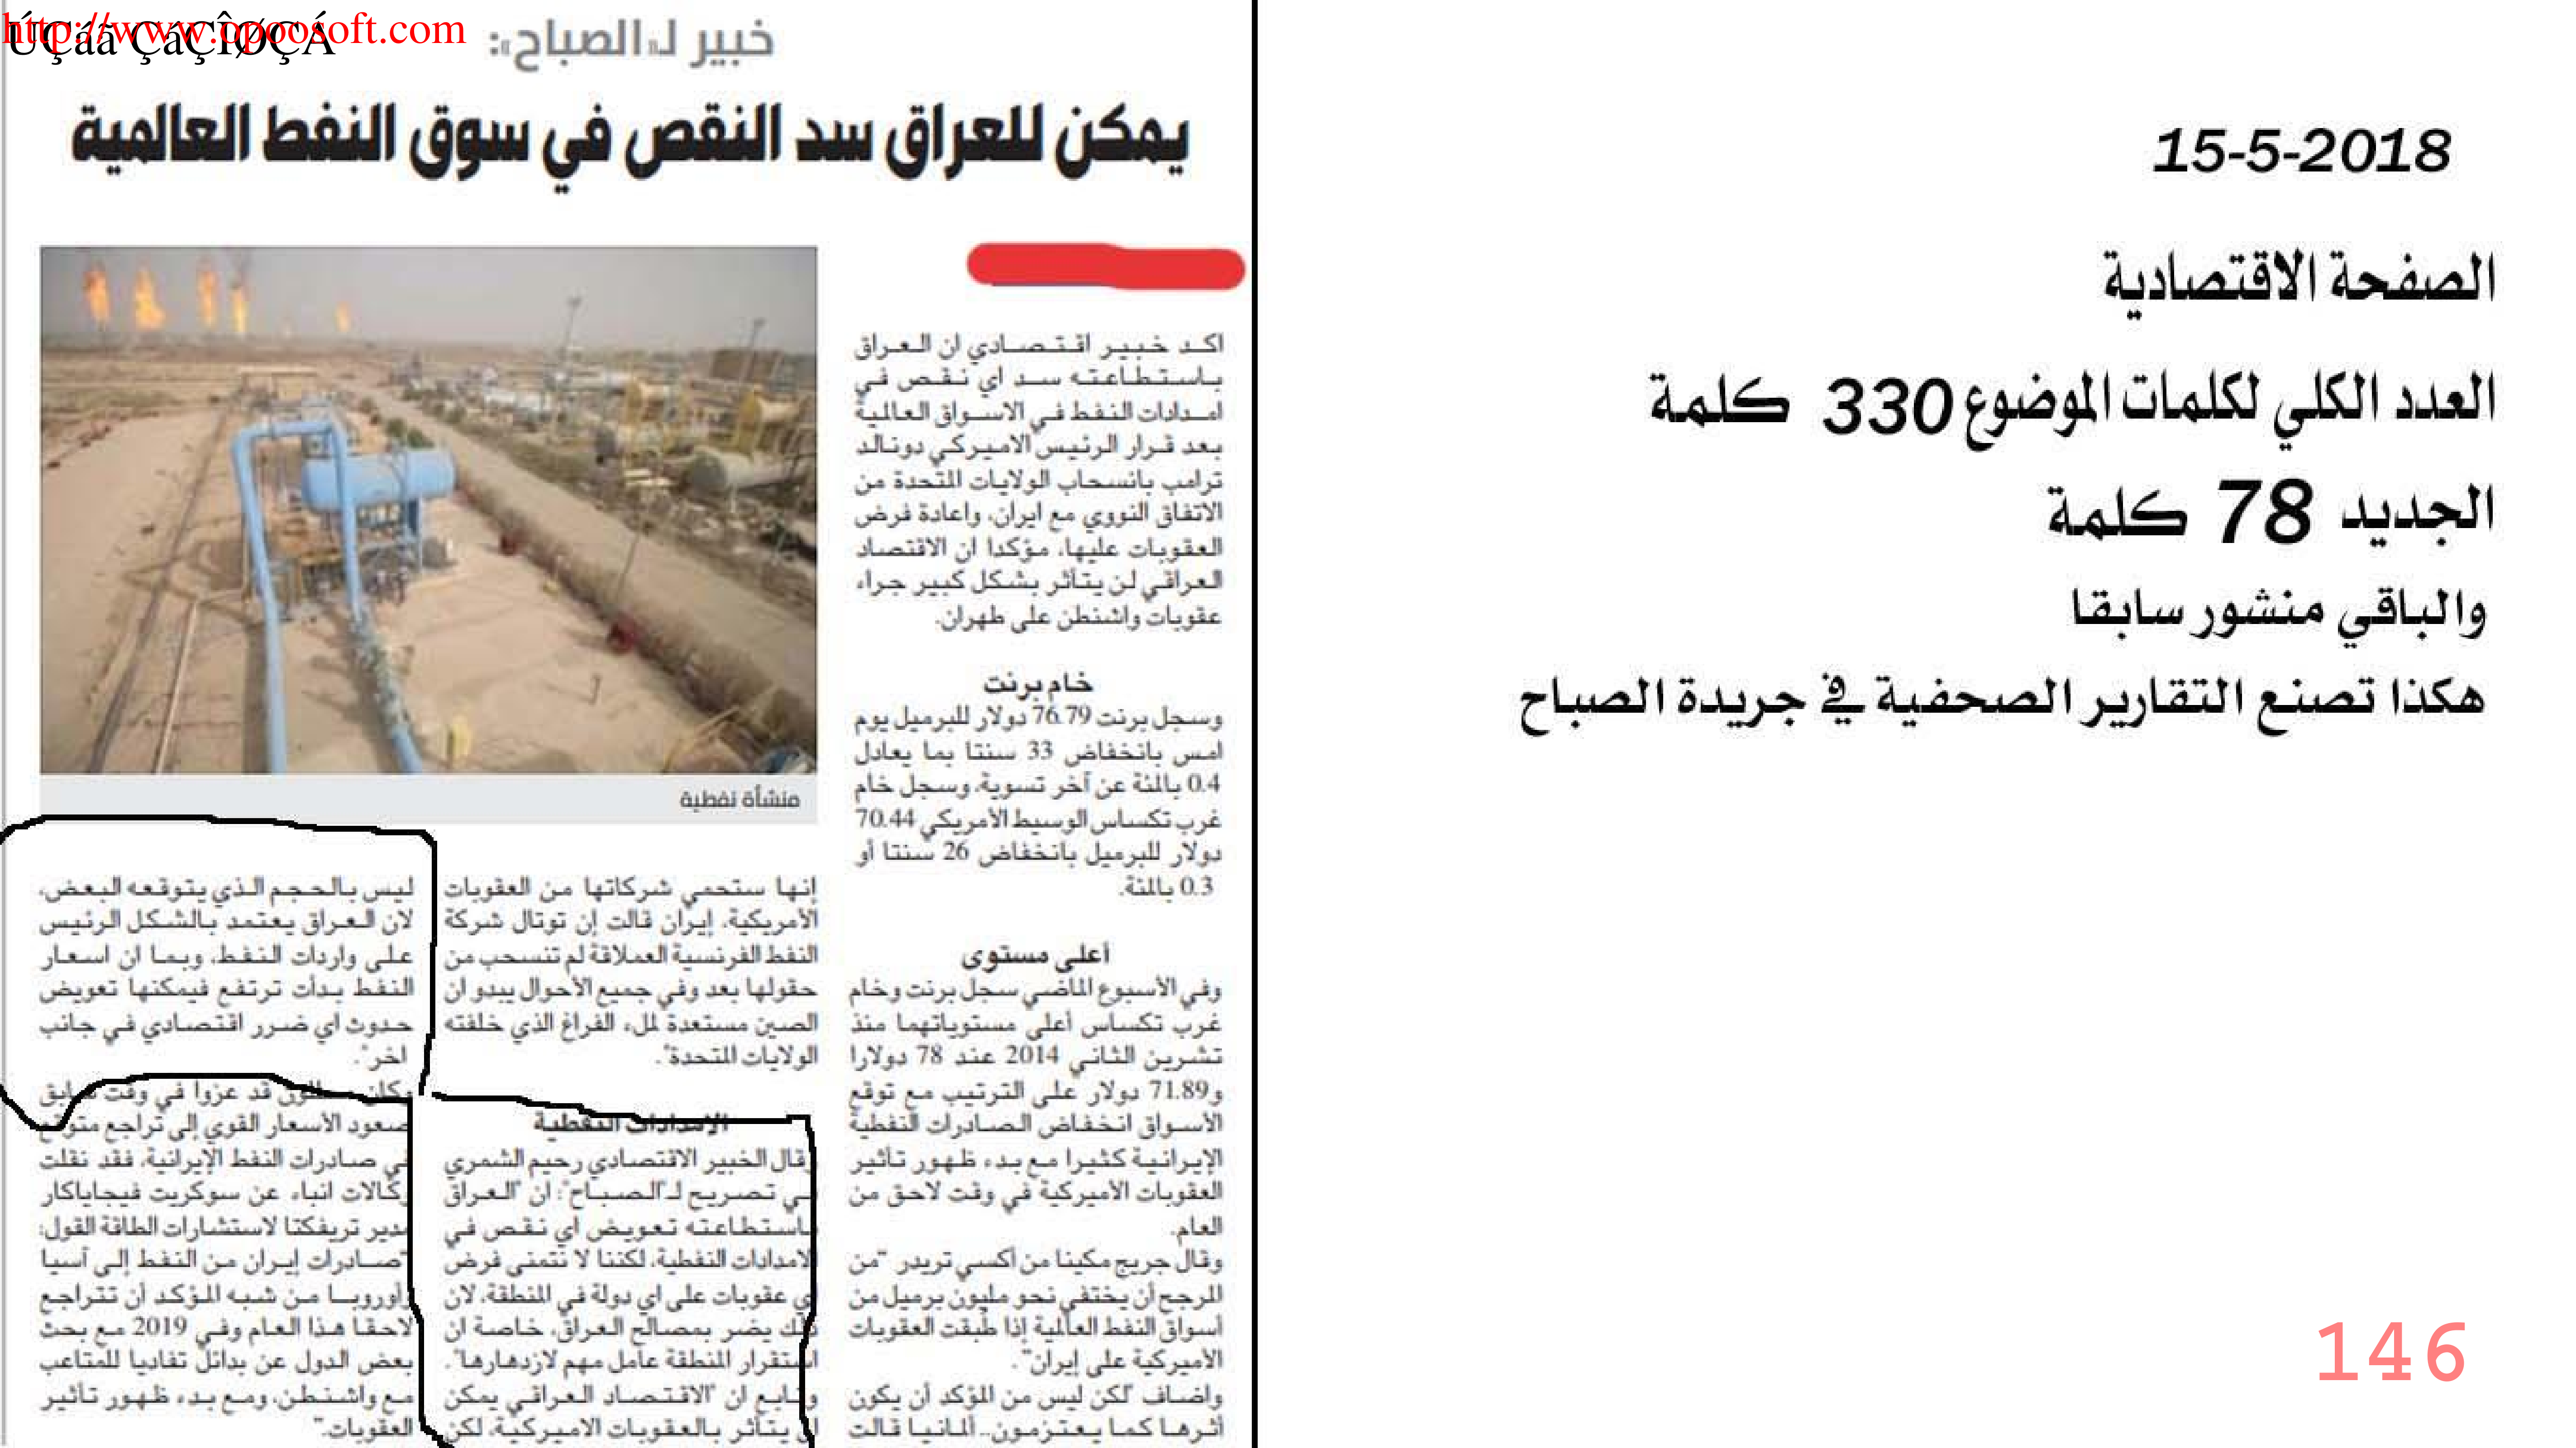 http://www.opoosoft.com
ÚÇáã ÇáÇÎØÇÁ
خبير لـ«الصباح»:
يمكن للعراق سد النقص في سوق النفط العالمية
اكد خبير اقتصادي ان العراق
باستطاعته سد اي نقص في
امدادات النفط في الاسواق العالمية
بعد قرار الرئيس الاميركي دونالد
ترامب بانسحاب الولايات المتحدة من
الاتفاق النووي مع ايران، واعادة فرض
العقوبات عليها، مؤكدا ان الاقتصاد
العراقي لن يتأثر بشكل كبير جراء
عقوبات واشنطن على طهران.
خام برنت
وسجل برنت 76.79 دولار للبرميل يوم
امس بانخفاض 33 سنتا بما يعادل
0.4 بالمئة عن آخر تسوية، وسجل خام
غرب تكساس الوسيط الأمريكي 70.44
دولار للبرميل بانخفاض 26 سنتا أو
0.3 بالمئة.
أعلى مستوى
وفي الأسبوع الماضي سجل برنت وخام
غرب تكساس أعلى مستوياتهما منذ
تشرين الثاني 2014 عند 78 دولارا
و71.89 دولار على الترتيب مع توقع
الأسواق انخفاض الصادرات النفطية
الإيرانية كثيرا مع بدء ظهور تأثير
العقوبات الأميركية في وقت لاحق من
العام.
وقال جريج مكينا من أكسي تريدر "من
المرجح أن يختفي نحو مليون برميل من
أسواق النفط العالمية إذا طُبقت العقوبات
الأميركية على إيران".
واضاف "لكن ليس من المؤكد أن يكون
أثرها كما يعتزمون.. ألمانيا قالت
منشأة نفطية
إنها ستحمي شركاتها من العقوبات
الأمريكية، إيران قالت إن توتال شركة
النفط الفرنسية العملاقة لم تنسحب من
حقولها بعد وفي جميع الأحوال يبدو ان
الصين مستعدة لملء الفراغ الذي خلفته
الولايات المتحدة".
الإمدادات النفطية
وقال الخبير الاقتصادي رحيم الشمري
في تصريح لـ"الصباح": ان "العراق
باستطاعته تعويض اي نقص في
الامدادات النفطية، لكننا لا نتمنى فرض
اي عقوبات على اي دولة في المنطقة، لان
ذلك يضر بمصالح العراق، خاصة ان
استقرار المنطقة عامل مهم لازدهارها".
وتابع ان "الاقتصاد العراقي يمكن
ان يتأثر بالعقوبات الاميركية، لكن
ليس بالحجم الذي يتوقعه البعض،
لان العراق يعتمد بالشكل الرئيس
على واردات النفط، وبما ان اسعار
النفط بدأت ترتفع فيمكنها تعويض
حدوث اي ضرر اقتصادي في جانب
اخر".
وكان محللون قد عزوا في وقت سابق
صعود الأسعار القوي إلى تراجع متوقع
في صادرات النفط الإيرانية، فقد نقلت
وكالات انباء عن سوكريت فيجاياكار
مدير تريفكتا لاستشارات الطاقة القول:
"صادرات إيران من النفط إلى آسيا
وأوروبا من شبه المؤكد أن تتراجع
لاحقا هذا العام وفي 2019 مع بحث
بعض الدول عن بدائل تفاديا للمتاعب
مع واشنطن، ومع بدء ظهور تأثير
العقوبات."
15-5-2018
الصفحة الاقتصادية
العدد الكلي لكلمات الموضوع 330 كلمة
الجديد 78 كلمة
والباقي منشور سابقا
هكذا تصنع التقارير الصحفية في جريدة الصباح
146